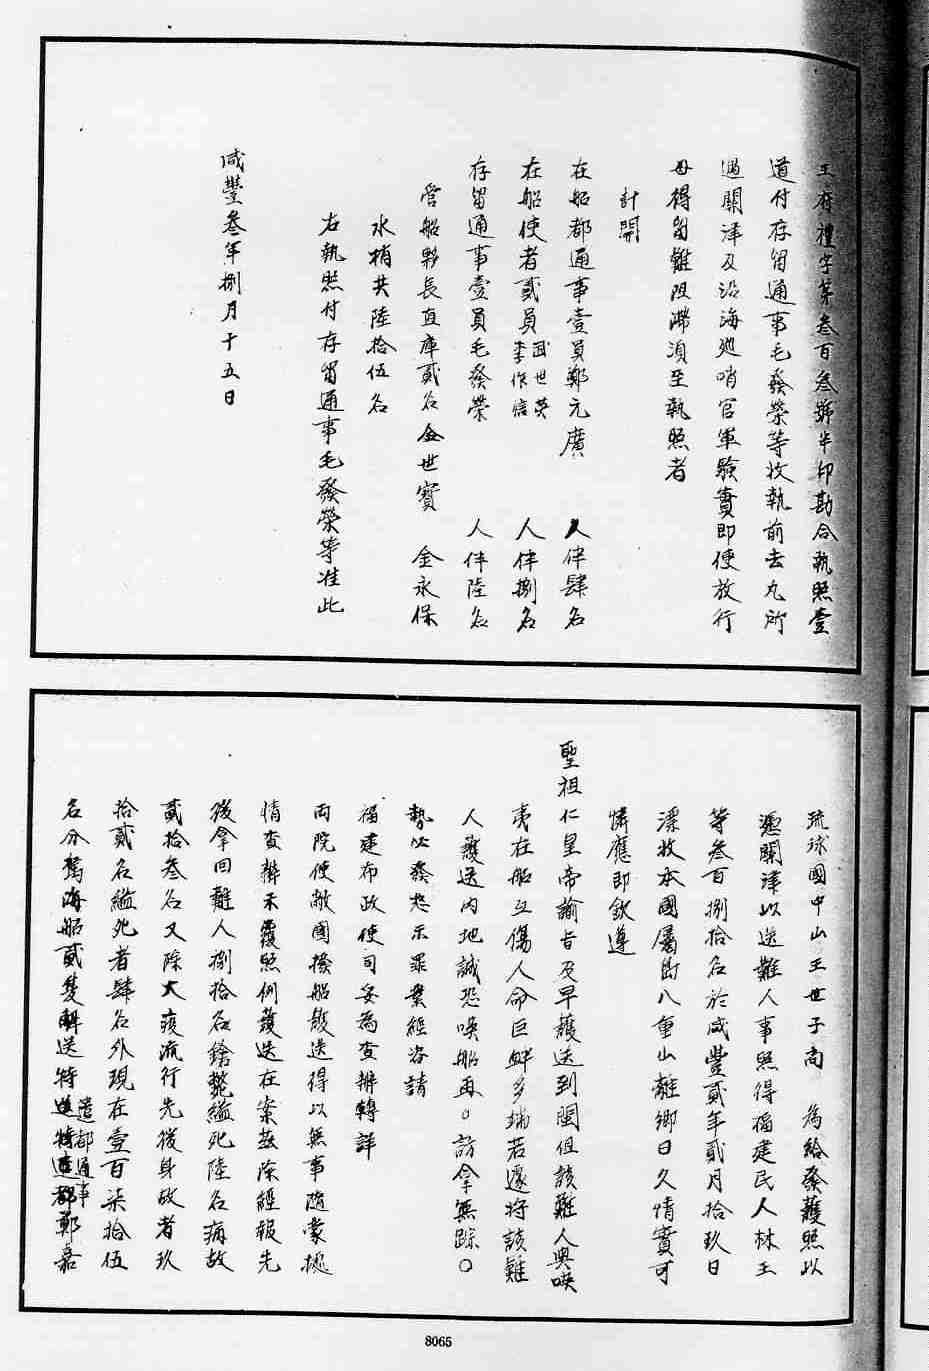 王府禮字第叁百叁號半印勘合執照壹
道付存留通事毛發榮等收執前去凡所
過關津及沿海廵哨官軍驗實即便放行
毋得留難阻滯須至執照者
計開
在船都通事壹員鄭元廣 人伴肆名
在船使者貳員武世英李作信 人伴捌名
存留通事壹員毛發榮 人伴陸名
管船夥長直庫貳名金世寶 金永保
水梢共陸拾伍名
右執照付存留通事毛發榮等准此
咸豐叁年捌月十五日
琉球國中山王世子尚 為給發護照以
過關津以送難人事照得福建民人林玉
等叁百捌拾名於咸豐貳年貳月拾玖日
漂收本國屬島八重山離鄉日久情實可
憐應即欽遵
聖祖仁皇帝諭旨及早護送到閩但該難人與𠸄
夷在船互傷人命巨衅多端若遽將該難
人護送內地誠恐喚船再〇訪拿無踪〇
勢必發怒示罪業經咨請
福建布政使司妥為查辦轉詳
両院使敝國撥船護送得以無事隨蒙據
情查辦示覆照例護送在案茲除經報先
後拿回難人捌拾名鎗斃縊死陸名病故
貳拾叁名又除大疫流行先後身故者玖
拾貳名縊死者肆名外現在壹百柒拾伍
名分駕海船貳隻解送特遣都通事鄭嘉
8065